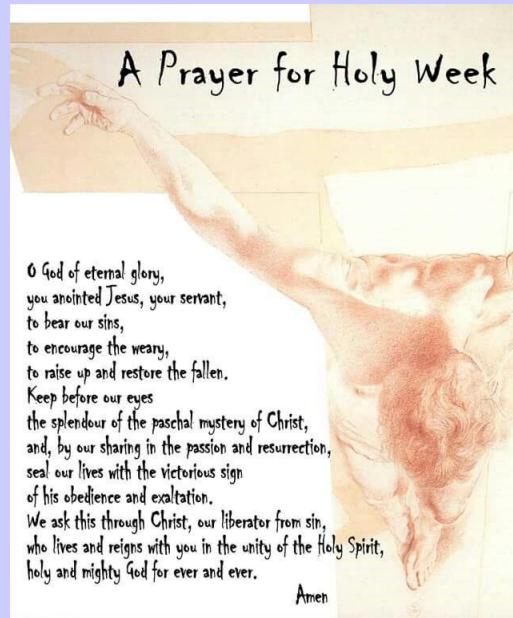 A Prayer for Holy Week
O God of eternal glory,
you anointed Jesus, your servant,
to bear our sins,
to encourage the weary,
to raise up and restore the fallen.
Keep before our eyes
the splendour of the paschal mystery of Christ,
and, by our sharing in the passion and resurrection,
seal our lives with the victorious sign
of his obedience and exaltation.
We ask this through Christ, our liberator from sin,
who lives and reigns with you in the unity of the Holy Spirit,
holy and mighty God for ever and ever.
Amen